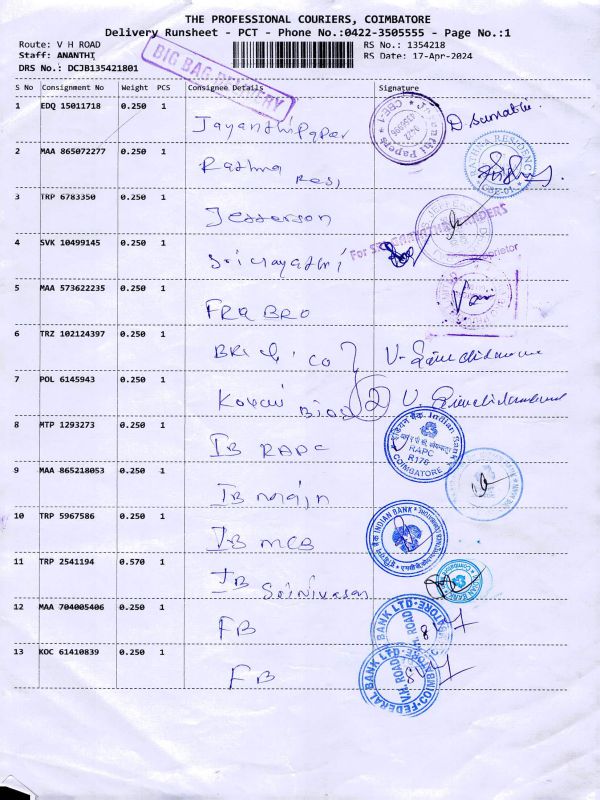 THE PROFESSIONAL COURIERS, COIMBATORE
Delivery Runsheet - PCT - Phone No.:0422-3505555 - Page No.:1
Route: V H ROAD
RS No.: 1354218
Staff: ANANTHI
RS Date: 17-Apr-2024
DRS No.: DCJB135421801
BIG BAG DELIVERY
S No Consignment No Weight PCS Consignee Details Signature
1 EDQ 15011718 0.250 1 Jayanthi Paper
2 MAA 865072277 0.250 1 Rathna Res,
RATHNA RESIDENCY
3 TRP 6783350 0.250 1 Jefferson
4 SVK 10499145 0.250 1 Sri Gayathri
For SRI GAYATHRI TRADERS
Proprietor
5 MAA 573622235 0.250 1 FRQ BRO
6 TRZ 102124397 0.250 1
7 POL 6145943 0.250 1 Kovai Bios 2
8 MTP 1293273 0.250 1 IB RAPC
इंडियन बैंक. Indian Bank
RAPC
R176
COIMBATORE
9 MAA 865218053 0.250 1 IB main
10 TRP 5967586 0.250 1 IB MCB
INDIAN BANK
11 TRP 2541194 0.570 1 IB Srinivasan
INDIAN BANK
12 MAA 704005406 0.250 1 FB
BANK LTD
V.H. ROAD
13 KOC 61410839 0.250 1 FB
FEDERAL BANK LTD. COIMBATORE
V.H. ROAD